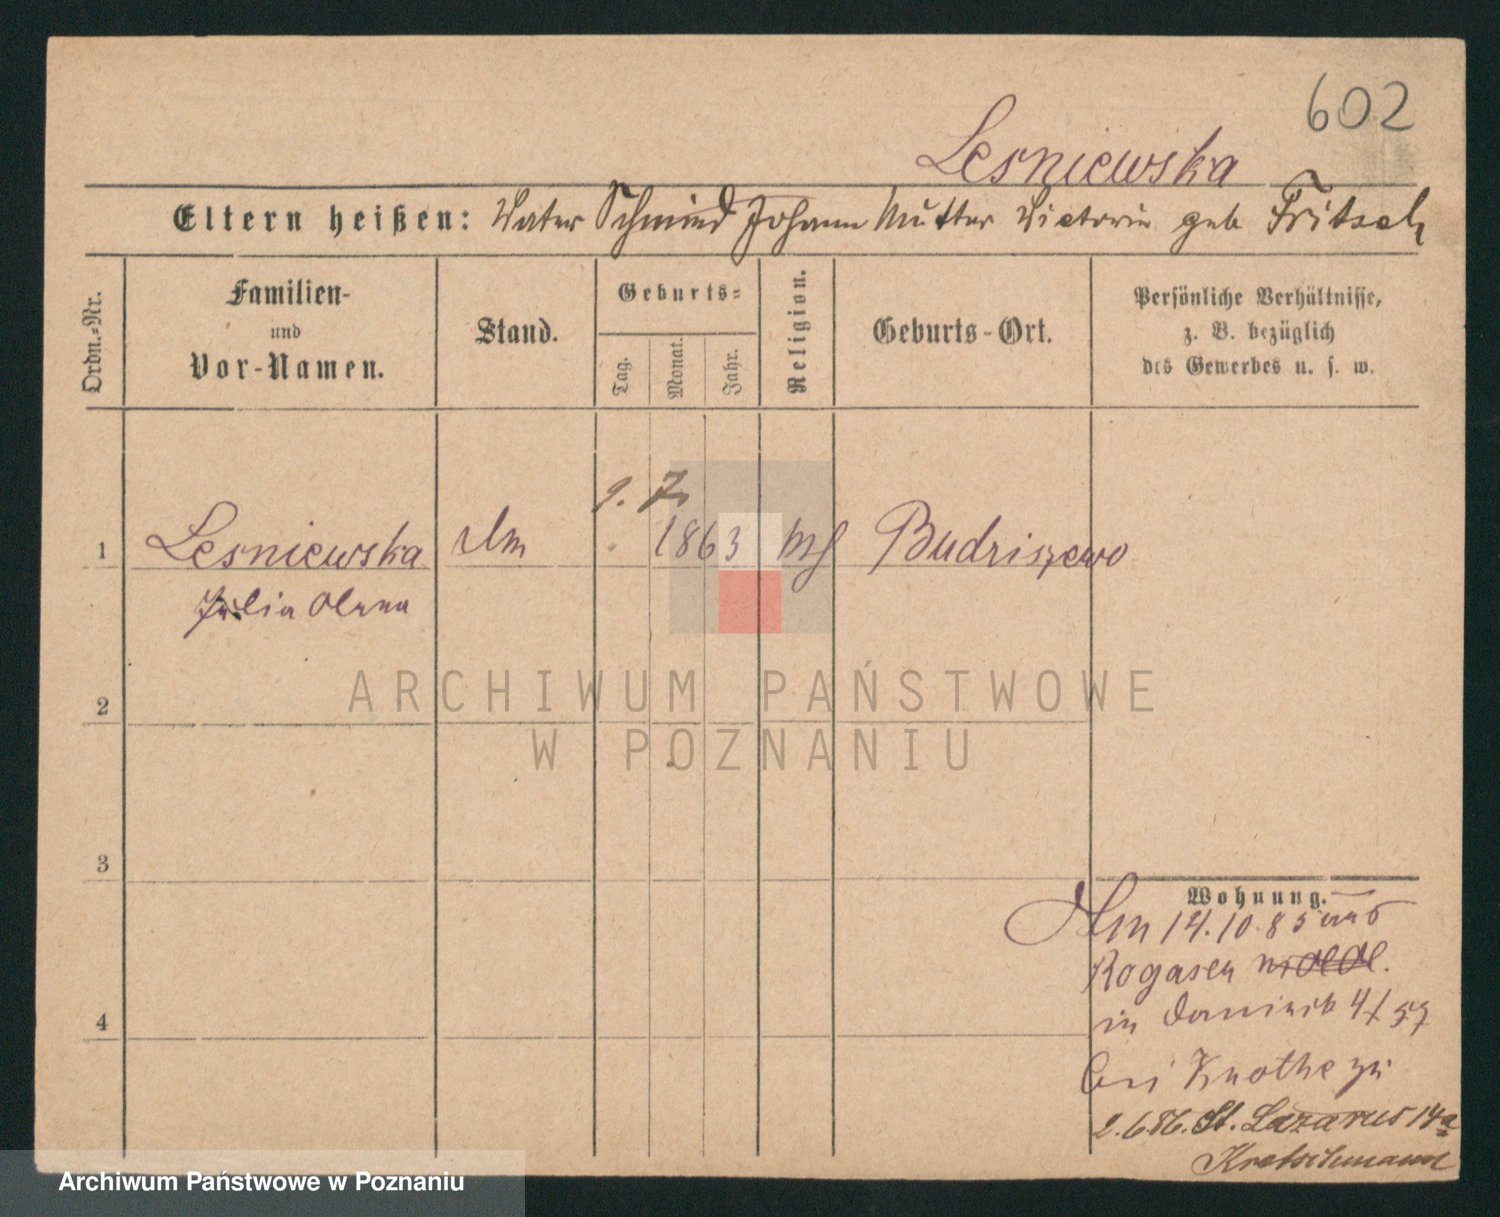 602
Lesniewska
Eltern heißen: Vater Schmied Johann Mutter Victoria geb Fritsch
Ordn.-Nr.
Familien-
und
Vor-Namen.
Stand.
Geburts-
Tag.
Monat.
Jahr.
Religion.
Geburts-Ort.
Persönliche Verhältnisse,
z. B. bezüglich
des Gewerbes u. s. w.
9. 7.
1 Lesniewska 1863 Budriszewo
Julia
2
3
4
Wohnung.
Am 14.10.85 aus
Rogasen
in Dominik 4/ 57
bei Knothe zu
2.6.86. St. Lazarus 14a
Kretschmann
ARCHIWUM PAŃSTWOWE
W POZNANIU
Archiwum Państwowe w Poznaniu